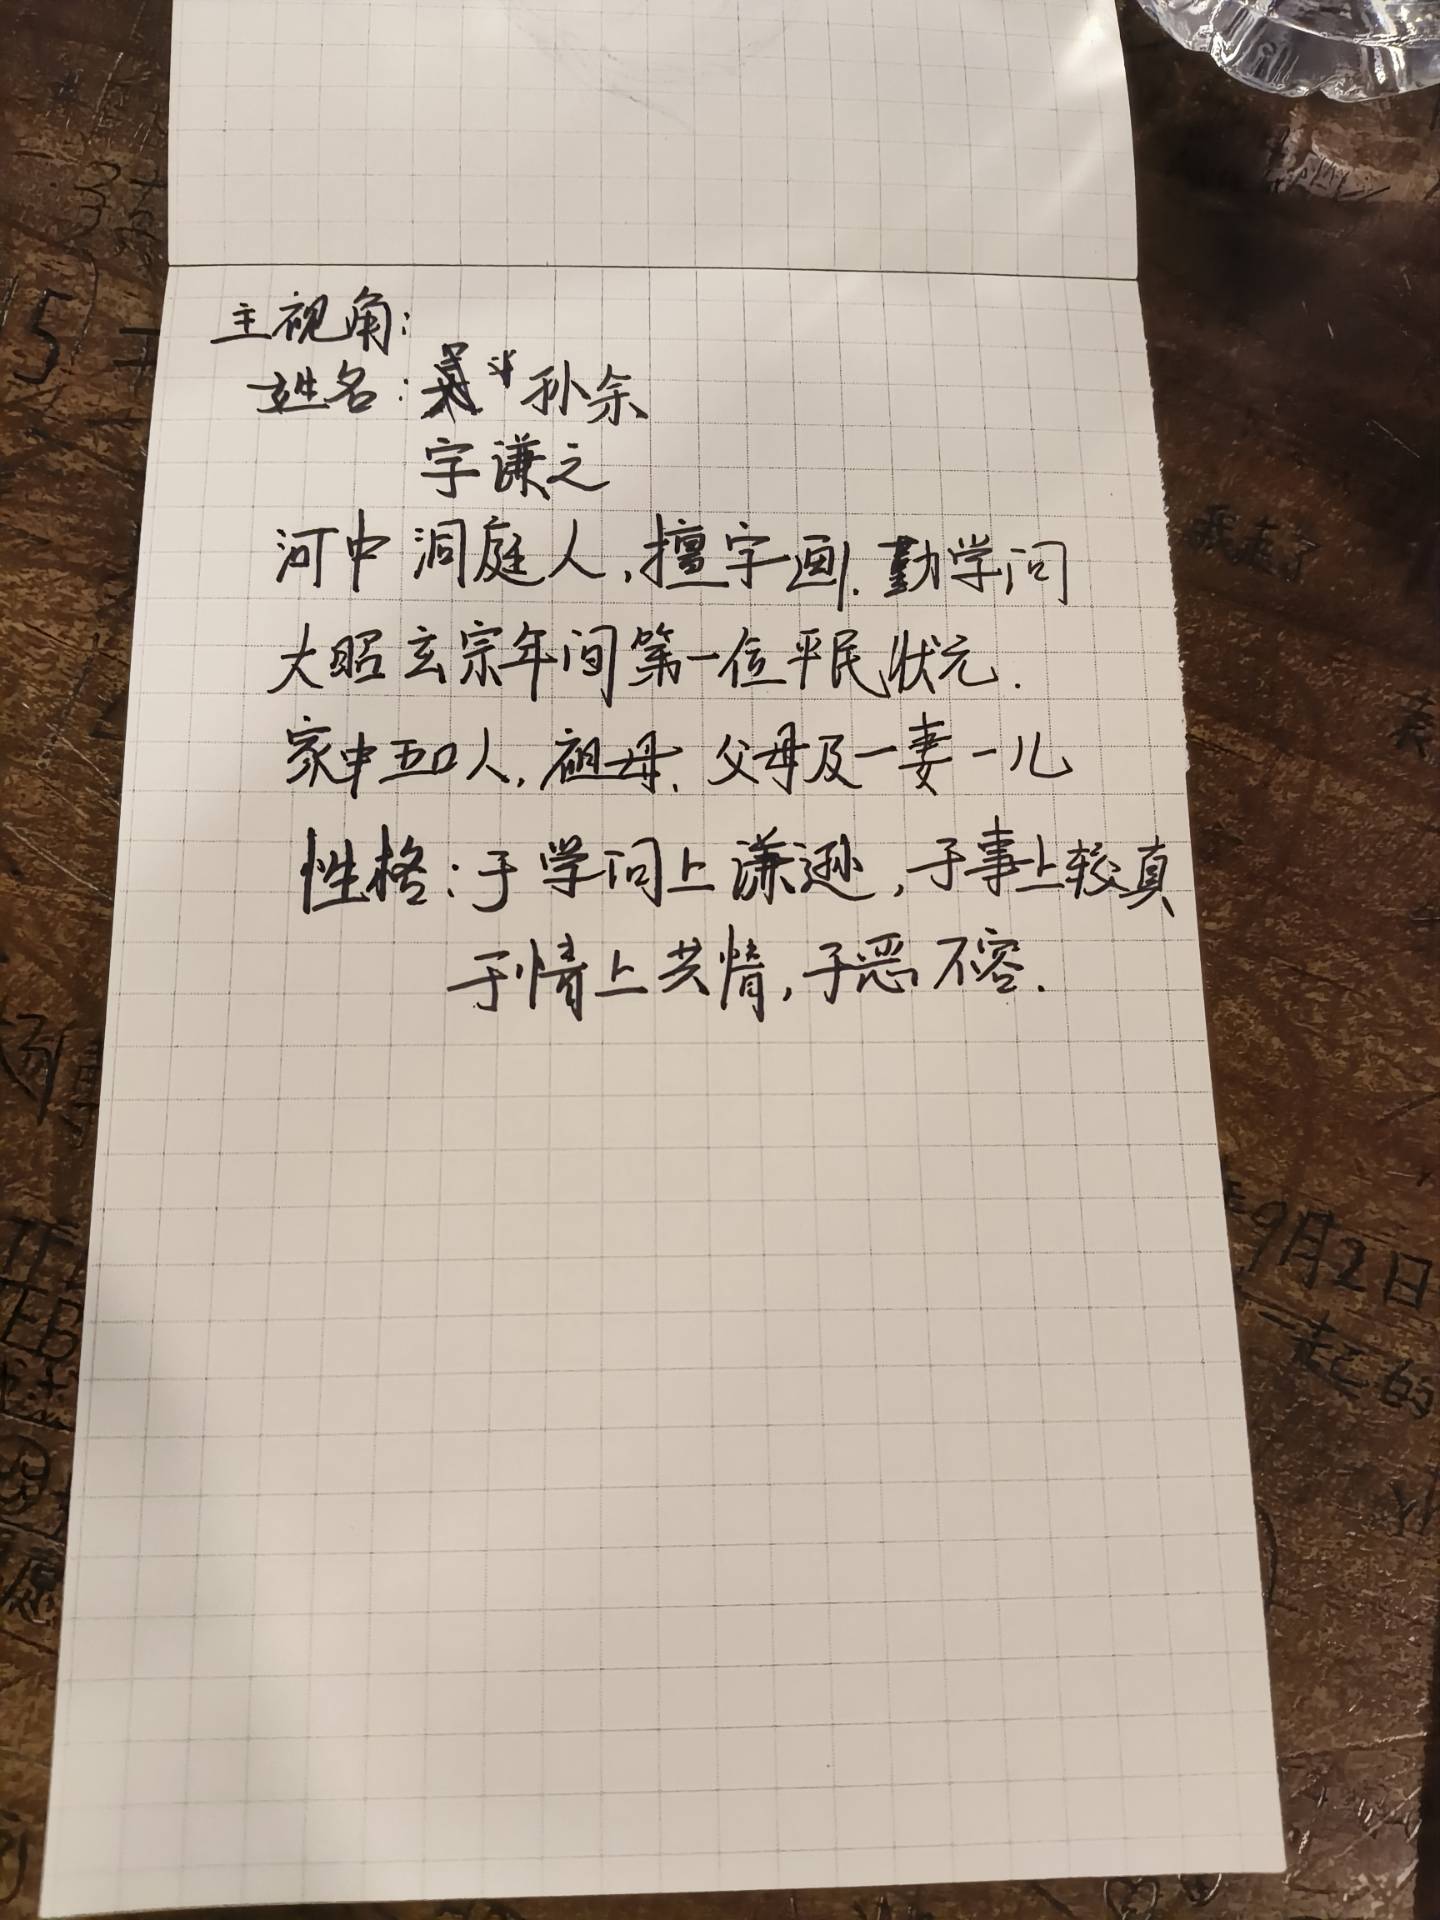 主视角:
姓名: 孙余
字谦之
河中洞庭人,擅字画.勤学问
大昭玄宗年间第一位平民状元.
家中五口人,祖母.父母及一妻一儿
性格:于学问上谦逊,于事上较真
于情上共情,于恶不容.
9月2日
一起的